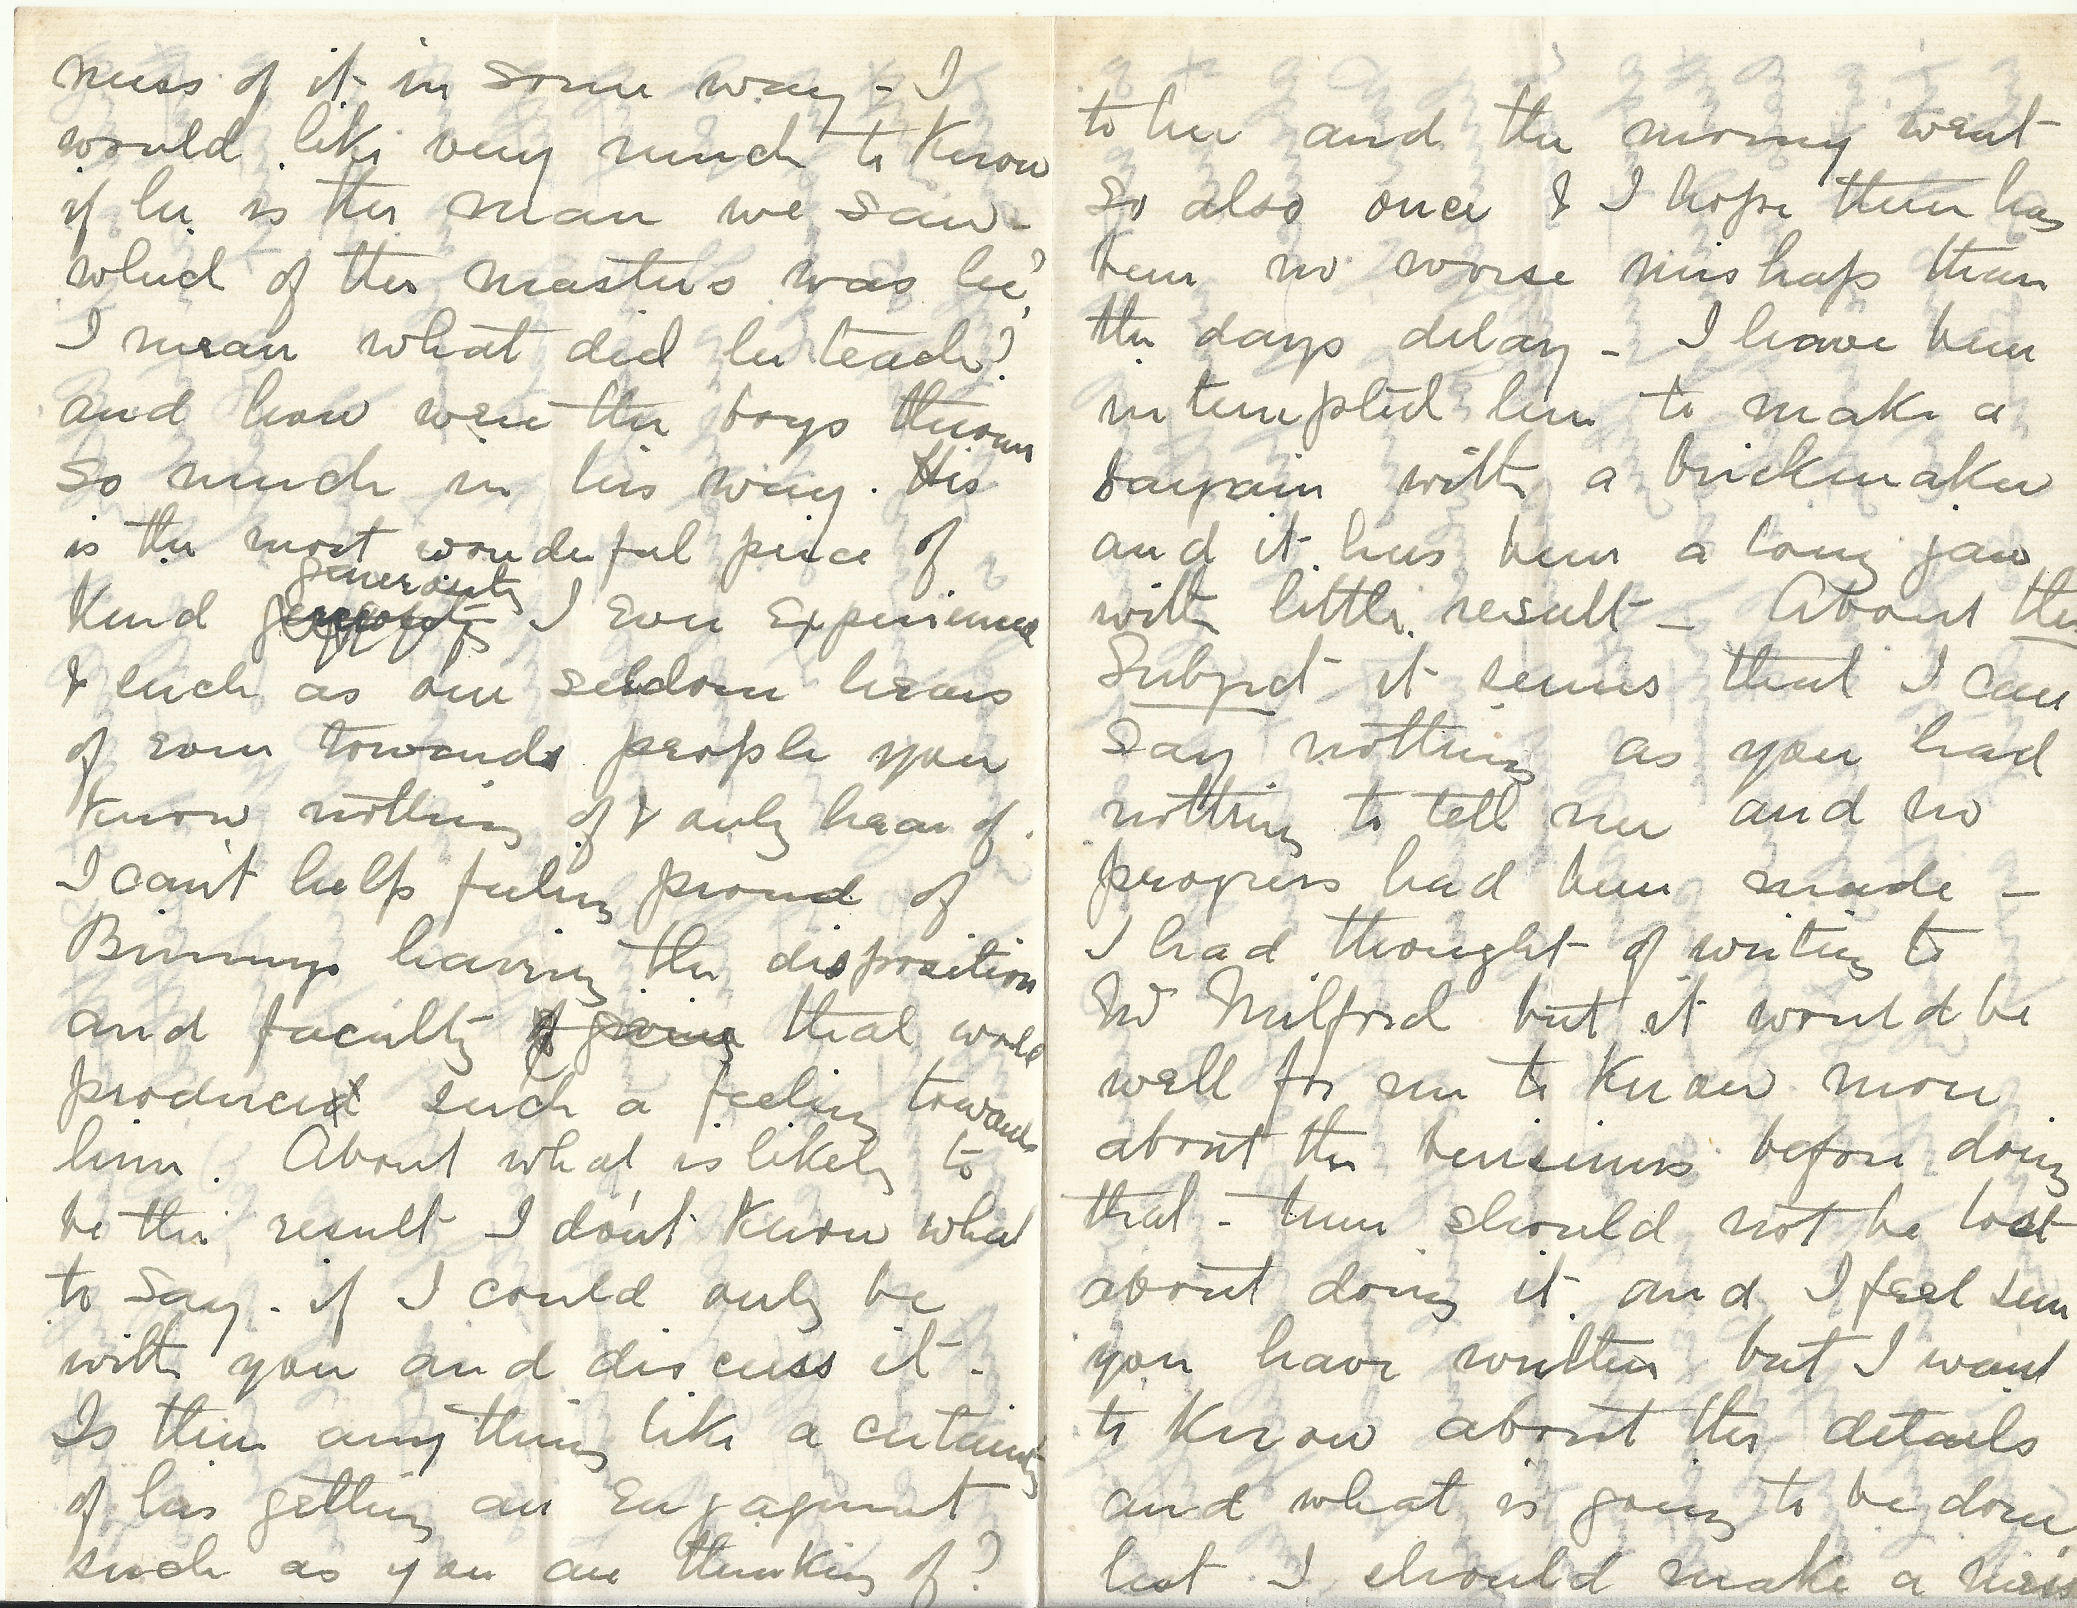 mess of it in some way - I
would like very much to know
if he is the man we saw -
which of the masters was he?
I mean what did he teach?
and how were the boys thrown
so much in his way. His
is the most wonderful piece of
generosity
kind I ever experienced
& such as one seldom hears
of even towards people you
know nothing of & only hear of.
I can't help feeling proud of
Binnings having the disposition
and faculty of going that would
produced such a feeling towards
him. About what is likely to
be the result I don't know what
to say - if I could only be
with you and discuss it -
Is there anything like a certainty
of his getting an engagement
such as you are thinking of?
to her and the money went
so also once & I hope there has
been no worse mishap than
the days delay - I have been
interrupted here to make a
bargain with a brickmaker
and it has been a long jaw
with little result - About the
Subject it seems that I can
say nothing as you had
nothing to tell me and no
progress had been made -
I had thought of writing to
Mr Milford but it would be
well for me to know more
about the business before doing
that - time should not be lost
about doing it and I feel sure
you have written but I want
to know about the details
and what is going to be done
lest I should make a mess